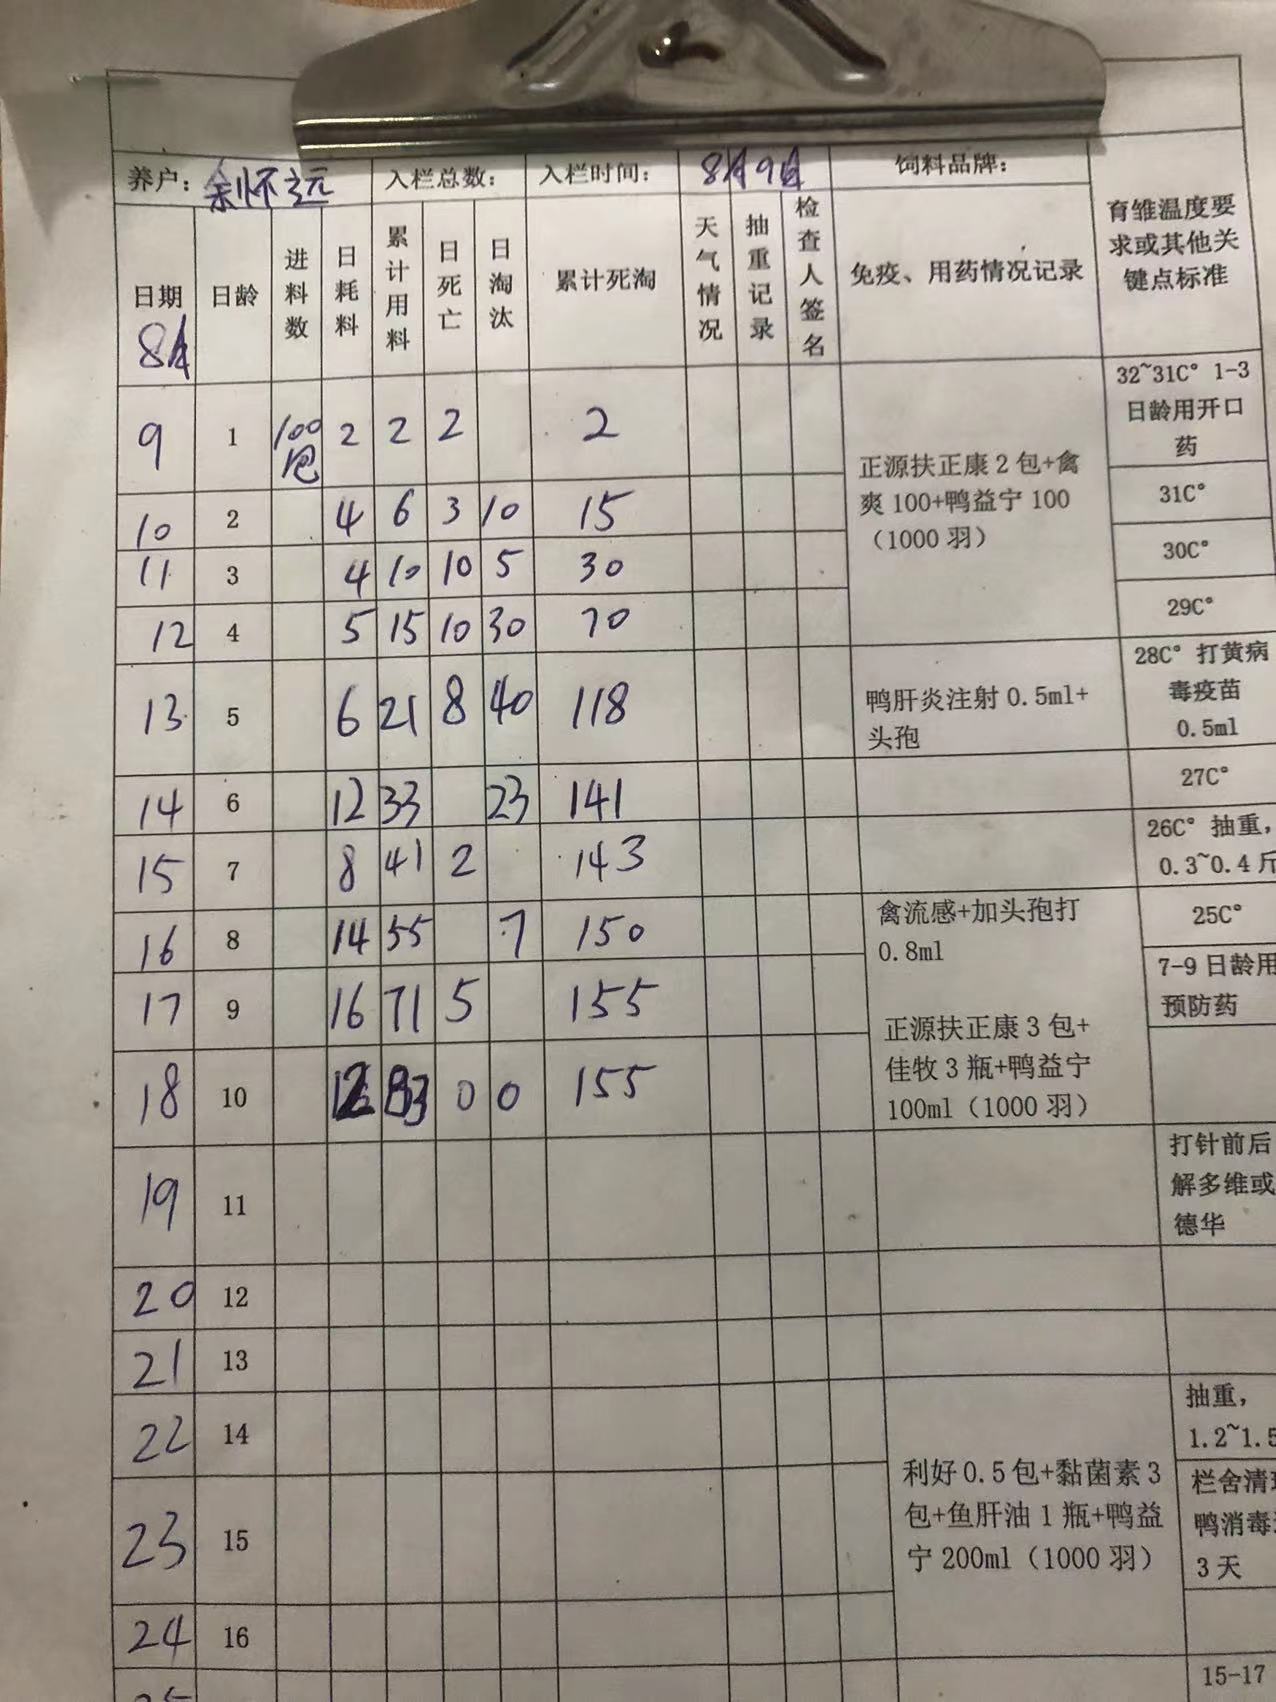 养户：余怀元 入栏总数： 入栏时间： 8月9日 饲料品牌：
日期 8月 日龄 进料数 日耗料 累计用料 日死亡 日淘汰 累计死淘 天气情况 抽重记录 检查人签名 免疫、用药情况记录 育雏温度要求或其他关键点标准
9 1 100包 2 2 2 2
32~31C° 1-3
日龄用开口
药
正源扶正康 2 包+禽
爽 100+鸭益宁 100
（1000 羽）
10 2 4 6 3 10 15 31C°
11 3 4 10 10 5 30 30C°
12 4 5 15 10 30 70 29C°
13 5 6 21 8 40 118
鸭肝炎注射 0.5ml+
头孢
28C° 打黄病
毒疫苗
0.5ml
14 6 12 33 23 141 27C°
15 7 8 41 2 143
26C° 抽重，
0.3~0.4 斤
16 8 14 55 7 150 25C°
禽流感+加头孢打
0.8ml
17 9 16 71 5 155
7-9 日龄用
预防药
正源扶正康 3 包+
佳牧 3 瓶+鸭益宁
100ml（1000 羽）
18 10 12 83 0 0 155
19 11
打针前后
解多维或
德华
20 12
21 13
22 14
抽重，
1.2~1.5
利好 0.5 包+黏菌素 3
包+鱼肝油 1 瓶+鸭益
宁 200ml（1000 羽）
23 15
栏舍清
鸭消毒
3 天
24 16
25
15-17